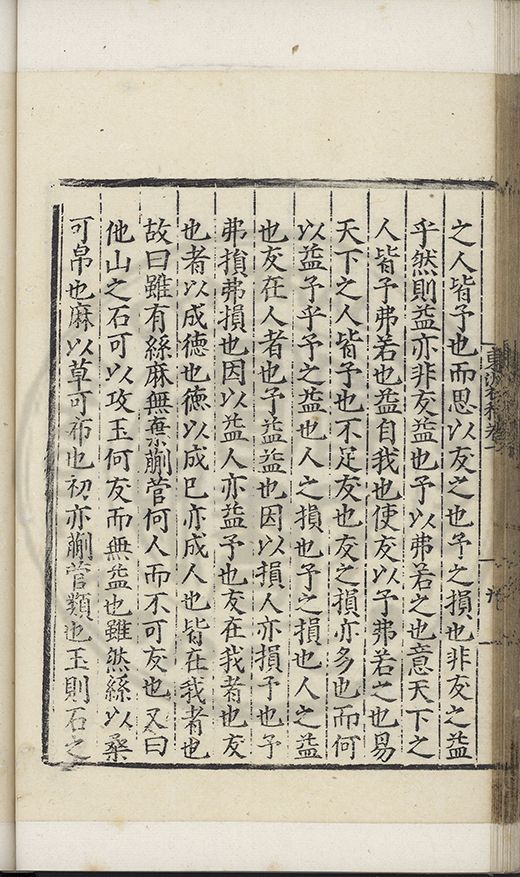 之人皆予也而思以友之也予之損也非友之益
乎然則益亦非友益也予以弗若之也意天下之
人皆予弗若也益自我也使友以予弗若之也曷
天下之人皆予也不足友也友之損亦多也而何
以益予乎予之益也人之損也予之損也人之益
也友在人者也予益益也因以損人亦損予也予
弗損弗損也因以益人亦益予也友在我者也友
也者以成德也德以成巳亦成人也皆在我者也
故曰雖有絲麻無棄蒯菅何人而不可友也又曰
他山之石可以攻玉何友而無益也雖然絲以桑
可帛也麻以草可布也初亦蒯菅類也玉則石之